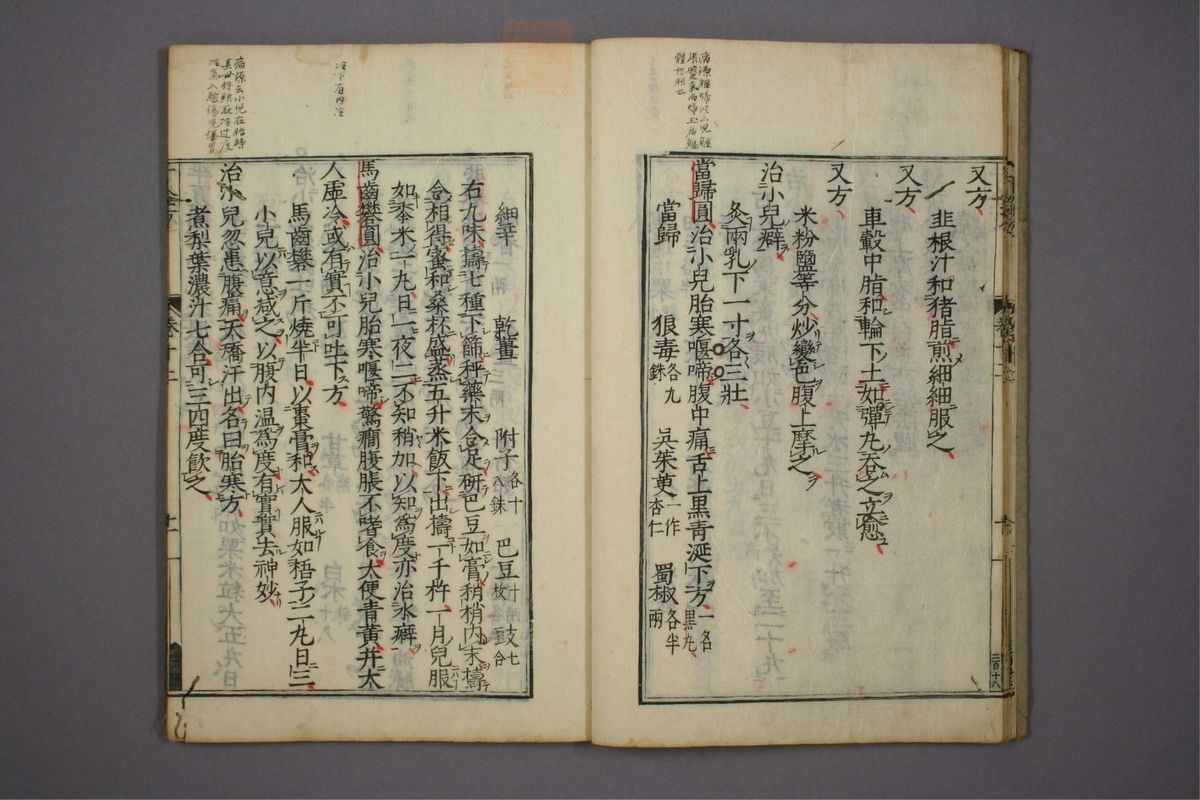 又方
韭根汁和猪脂煎細細服之
又方
車轂中脂和輪下土如彈丸吞之立愈
又方
米粉鹽等分炒變色腹上摩之
治小兒癖
灸兩乳下一寸各三壯
當歸圓治小兒胎寒喔啼腹中痛舌上黑青涎下方一名黑丸
當歸 狼毒各九銖 吳茱萸一作杏仁 蜀椒各半兩
細辛 乾薑 附子各十八銖 巴豆十枚 豉七合
右九味擣七種下篩秤藥末令足研巴豆如膏稍稍內末擣
令相得蜜和桑杯盛蒸五升米飯下出擣一千杵一月兒服
如黍米一丸日一夜二不知稍加以知爲度亦治水癖
馬齒礬圓治小兒胎寒喔啼驚癇腹脹不嗜食大便青黃并大
人虛冷或有實不可吐下方
馬齒礬一斤燒半日以棗膏和大人服如梧子二丸日三
小兒以意減之以腹內溫爲度有實實去神妙
治小兒忽患腹痛夭矯汗出名曰胎寒方
煮梨葉濃汁七合可三四度飲之
卷十二
十一